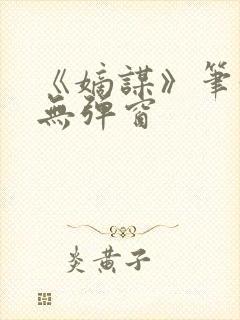 《嫡謀》筆
無彈窗
炎黃子